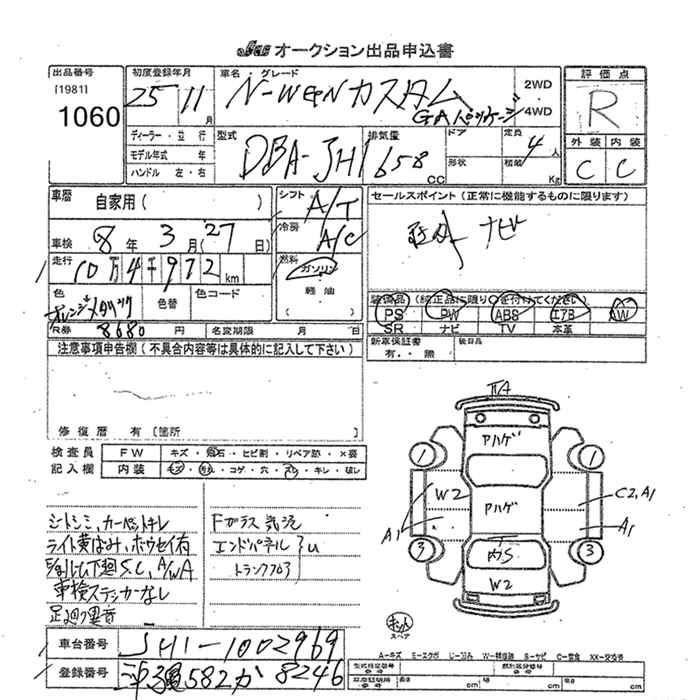 オークション出品申込書
出品番号
[1981]
1060
初度登録年月
25 11月
車名・グレード
N-WGNカスタム
GAパッケージ
2WD
4WD
評価点
R
外装 内装
C C
ディーラー・並行
モデル年式 年
ハンドル 左・右
型式
DBA-JH1
排気量
658cc
ドア
形状
定員
4人
積載
Kg
車歴
自家用( )
車検 8年 3月(27日)
走行
10万4千972km
色
オレンジメタリック
色替
色コード
R券 8680円
名変期限 月 日
シフト
A/T
冷房
A/C
燃料
ガソリン
軽油
( )
セールスポイント(正常に機能するものに限ります)
ナビ
装備品(純正品に限り○を付けてください)
PS PW ABS エアB AW
SR ナビ TV 本革
新車保証書
有・無
後日品
注意事項申告欄(不具合内容等は具体的に記入して下さい)
修復歴 有[箇所 ]
検査員
記入欄
FW キズ・飛石・ヒビ割・リペア跡・×要
内装 キズ・汚れ・コゲ・穴・スレ・キレ・破レ
シートシミ、カーペットキレ
ライト黄ばみ、ホウセイ有
下廻りS.C、A/WA
車検ステッカーなし
足廻り異音
Fガラス気泡
エンドパネル
トランクフロア
U
A
アハゲ
1
1
W2
アハゲ
C2,A1
A1
A1
3
3
内S
W2
キット
スペア
車台番号
JH1-1002969
登録番号
582か8246
A-キズ E-エクボ W-補修跡 S-サビ C-腐食 XX-交換済
型式指定番号
類別区分番号
長さ cm 幅 cm 高さ cm